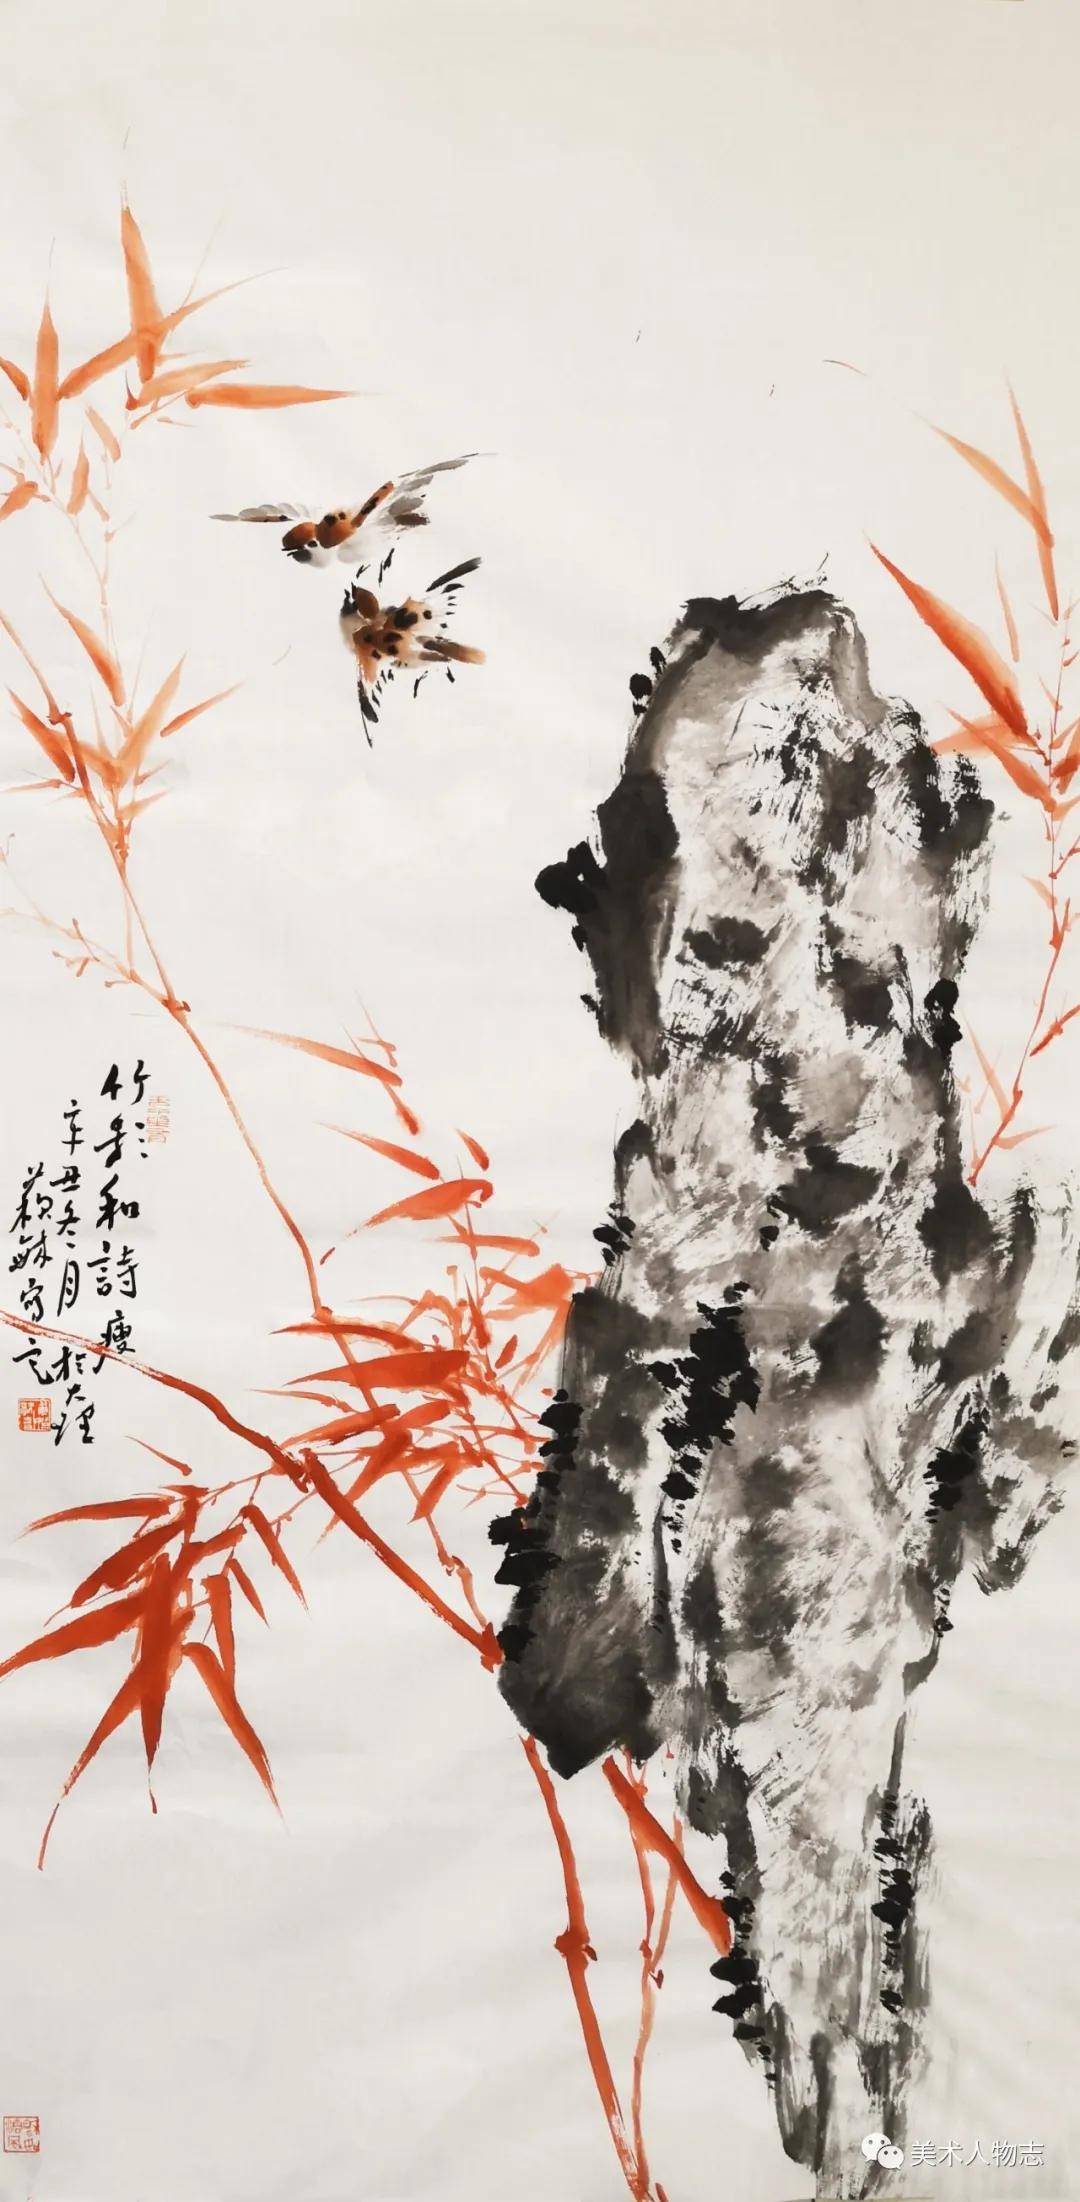 竹影和詩瘦
辛丑冬月於大理
蘇 寫意
美术人物志